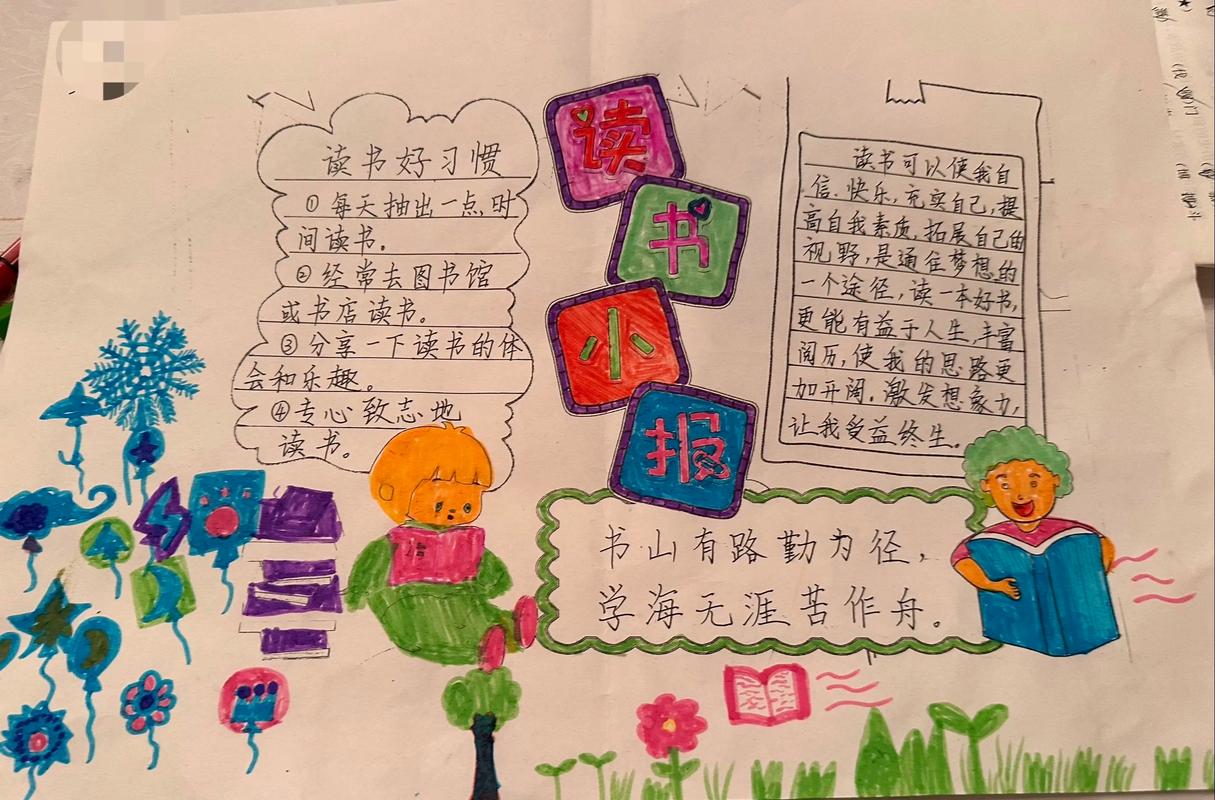 读书好习惯
①每天抽出一点时
间读书。
②经常去图书馆
或书店读书。
③分享一下读书的体
会和乐趣。
④专心致志地
读书。
读
书
小
报
读书可以使我自
信.快乐,充实自己,提
高自我素质,拓展自己的
视野,是通往梦想的
一个途径,读一本好书,
更能有益于人生,丰富
阅历,使我的思路更
加开阔.激发想象力,
让我受益终生。
书山有路勤为径,
学海无涯苦作舟。